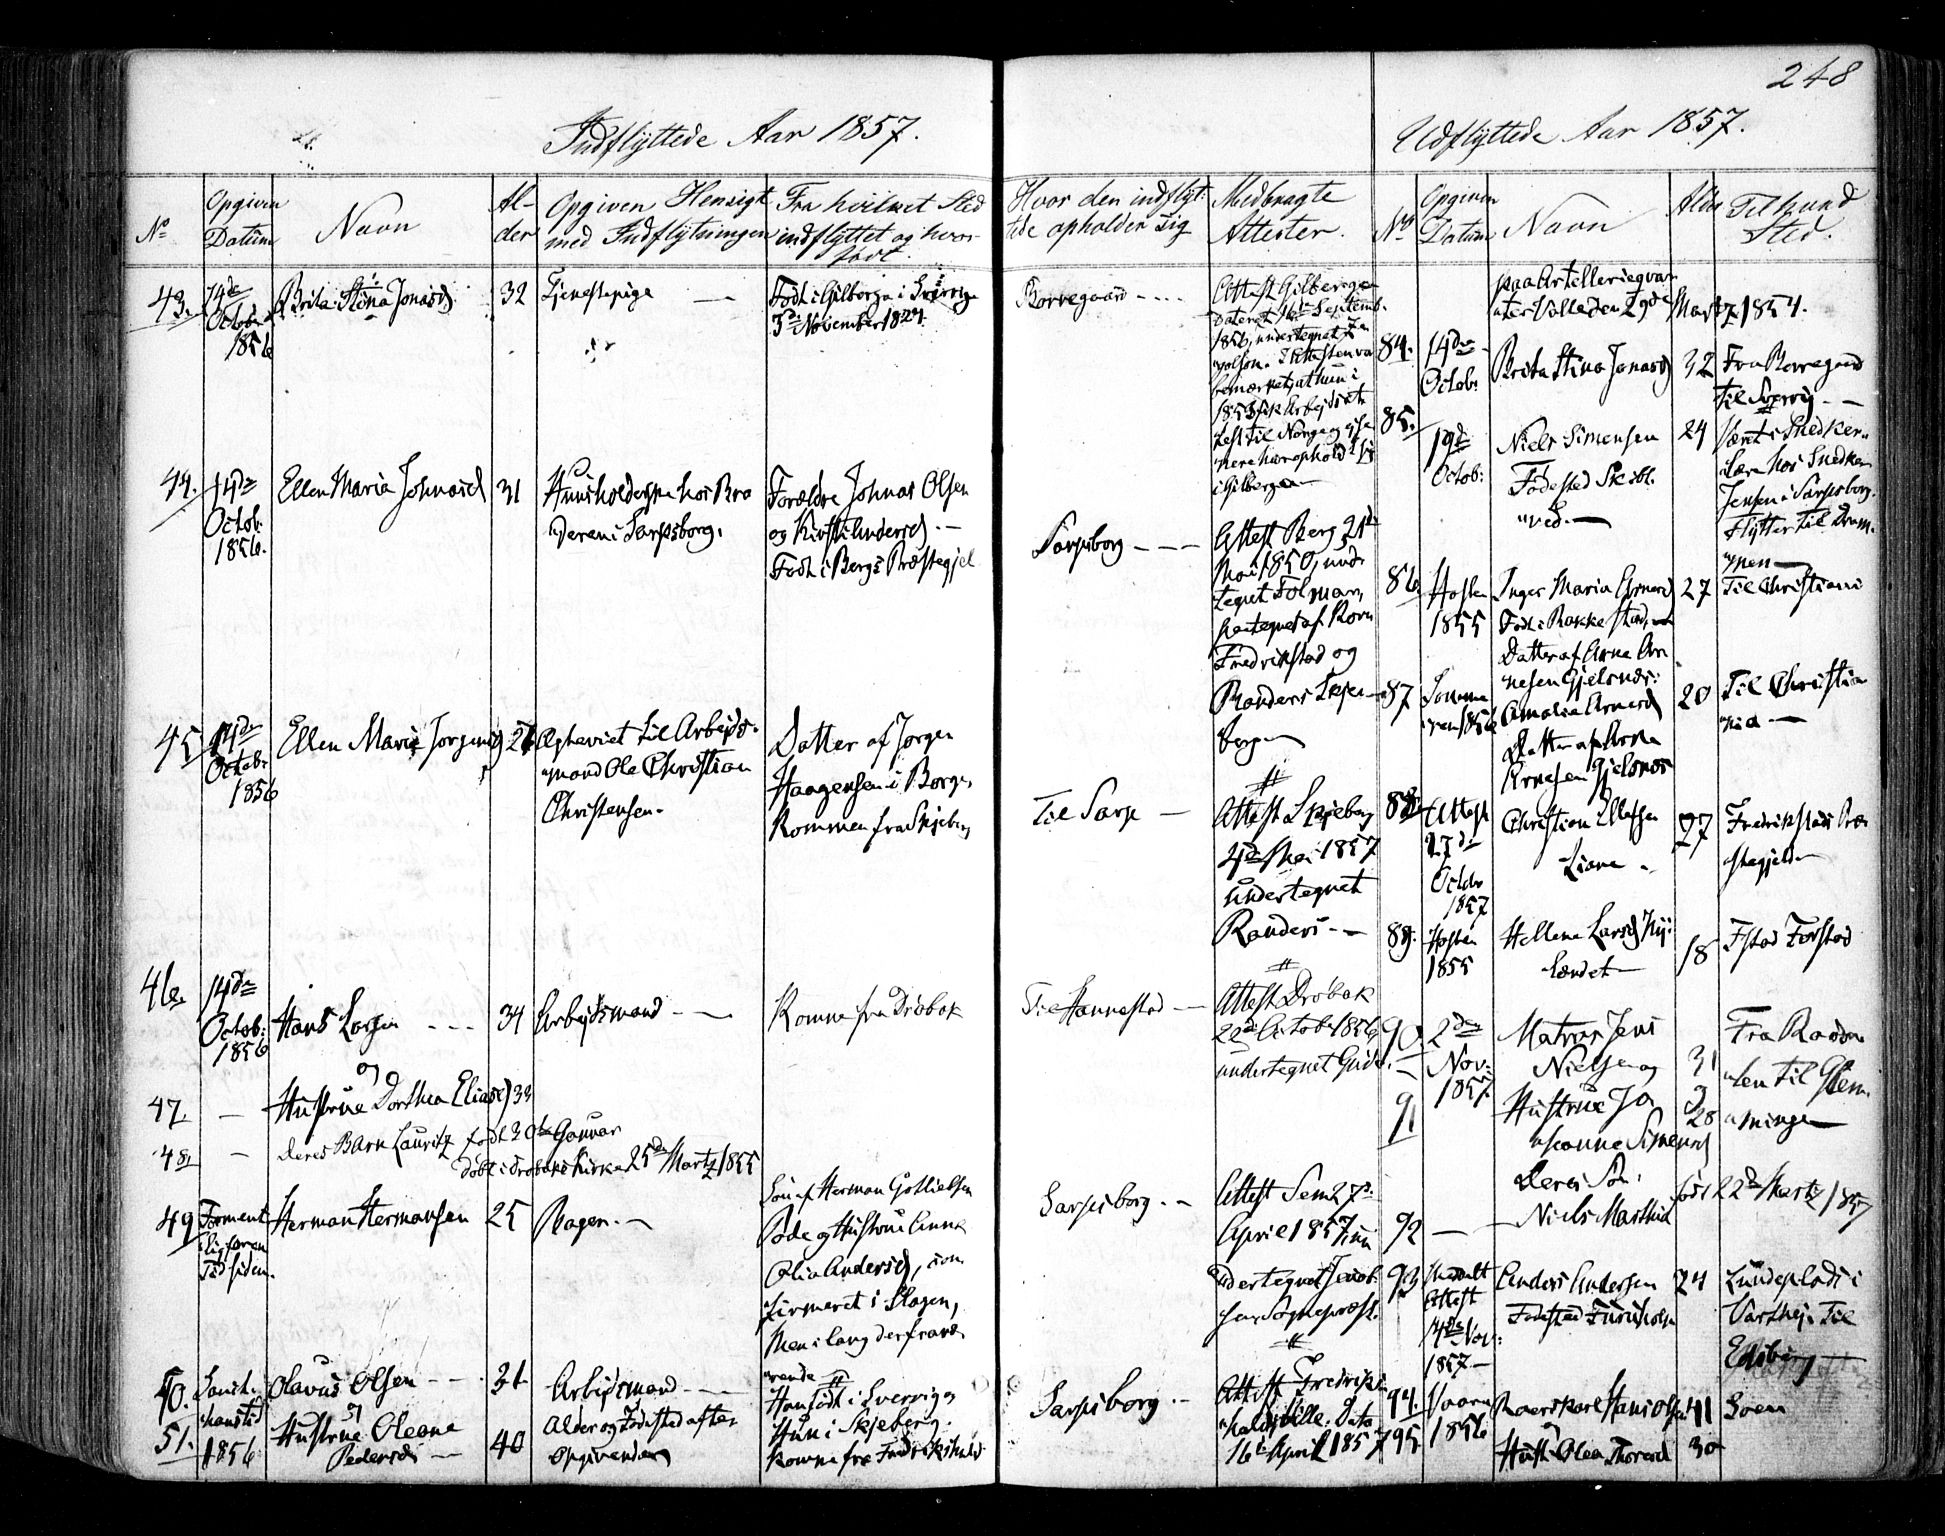 248
Indflyttede Aar 1857.
No
Opgiven
Datum
Navn
Al-
der
Opgiven Hensigt
med Indflytningen
Fra hvilket Sted
indflyttet og hvor
født.
Hvor den indflyt-
tede opholder sig
Medbragte
Attester.
43.
14de
Octob.
1856
Brita Stina Jonasd
32
Tjenestepige
Født i Gilberga i Sverrig
5te November 1824
Borregaard
Attest Gilberga
Dateret 16de Septemb.
1856, undertegnet
bemærket, at hun i
1853 fik Arbejdsat-
test til Norge og
i Gilberga
44.
14de
Octob:
1856.
Ellen Maria Johnasd
31
Huusholderske hos Bro
deren i Sarpsborg.
Forældre Johnas Olsen
og Kirsti Andersd.
Født i Bergs Præstegjel
Sarpsborg
Attest Berg 21de
Mai 1850, under
tegnet Folman,
paategnet af
Fredrikstad og
Randers Skjee
berg
45
14de
Octob:
1856
Ellen Marie Jorgensd
27
Ægteviet til Arbejds-
mand Ole Christian
Christensen.
Datter af Jorgen
Haagensen i Borge
Kommen fra Skjeberg
Til Sarp
Attest Skjeberg
4de Mai 1857
undertegnet
Randers
46.
14de
Octob:
1856
Hans Larsen
34
Arbejdsmand
Komne fra Drøbak
Til Hannestad
Attest Drobak
22de Octob 1856
undertegnet
og
47.
Hustrue Dorthea Eliasd
33
48.
deres Barn Lauritz født 20de Januar
døbt i Drobaks Kirke 25de Martz 1855
49
Forment
lig foran
Tid siden.
Herman Hermansen
25
Bager.
Søn af Herman Gotliebsen
Bode og Hustrue Anna
Olia Andersd, con
firmeret i Slagen,
Men i lang der fravæ
rende
Sarpsborg.
Attest Sem 27de
April 1857 un
dertegnet Jacob
sen Sognepræst.
50.
51.
1856
Olavus Olsen
og
Hustrue Oleane
Pedersd
31
40
Arbejdsmand
Alder og Fødested efter
Opgivende
Han født i Sverrig og
Hun i Skjeberg.
Komne fra Fredrikshald
Sarpsborg.
Attest Fredriks
hald
16de April 1857
Udflyttede Aar 1857.
No
Opgiven
Datum
Navn
Alder
Til hvad
Sted.
paa Artelleriegvar
Martz 1854.
84.
14de
Octob:
Brita Stina Jonasd
32
Fra Borregaard
til Sverrig
85.
19de
Octob:
Niels Simensen
Fødested Skibt
ved.
24
Været i Snedker-
Lære hos Snedker
Jensen i Sarpsborg.
Flytter til Dram-
men
86.
Høsten
1855
Inger Maria Arnesd
Født i Rakkestad,
Datter af Arne Ar
nesen Gjelsnæs:
27
Til Christiani
87
Somme
ren 1856
Amalia Arnesd
Datter af Arne
Arnesen Gjelsnæs
20
Til Christia
nia
88.
Attest
27de
Octbr
1857
Christian Ellefsen
Liane
27
Fredrikstads Præ
stegjeld
89.
Høsten
1855
Hellene Larsd Ny-
lændet
18
Istad Torstad
90.
2den
Nov:
1857
Matros Jens
Nielsen og
31
Fra Raade
len til Glem-
minge
91
Hustrue Jo
hanne Simensd
28
deres Søn:
92
Niels Mathias
født 22de Martz 1857
93
Meddelt
Attest
14de Nov:
1857
Anders Andersen
Fødested
24
Lundeplads i
Varteig. Til
Edsberg
94.
Vaaren
1856
Hans Olsen
41
Soen
95
Hustr Olea Thoresd
30